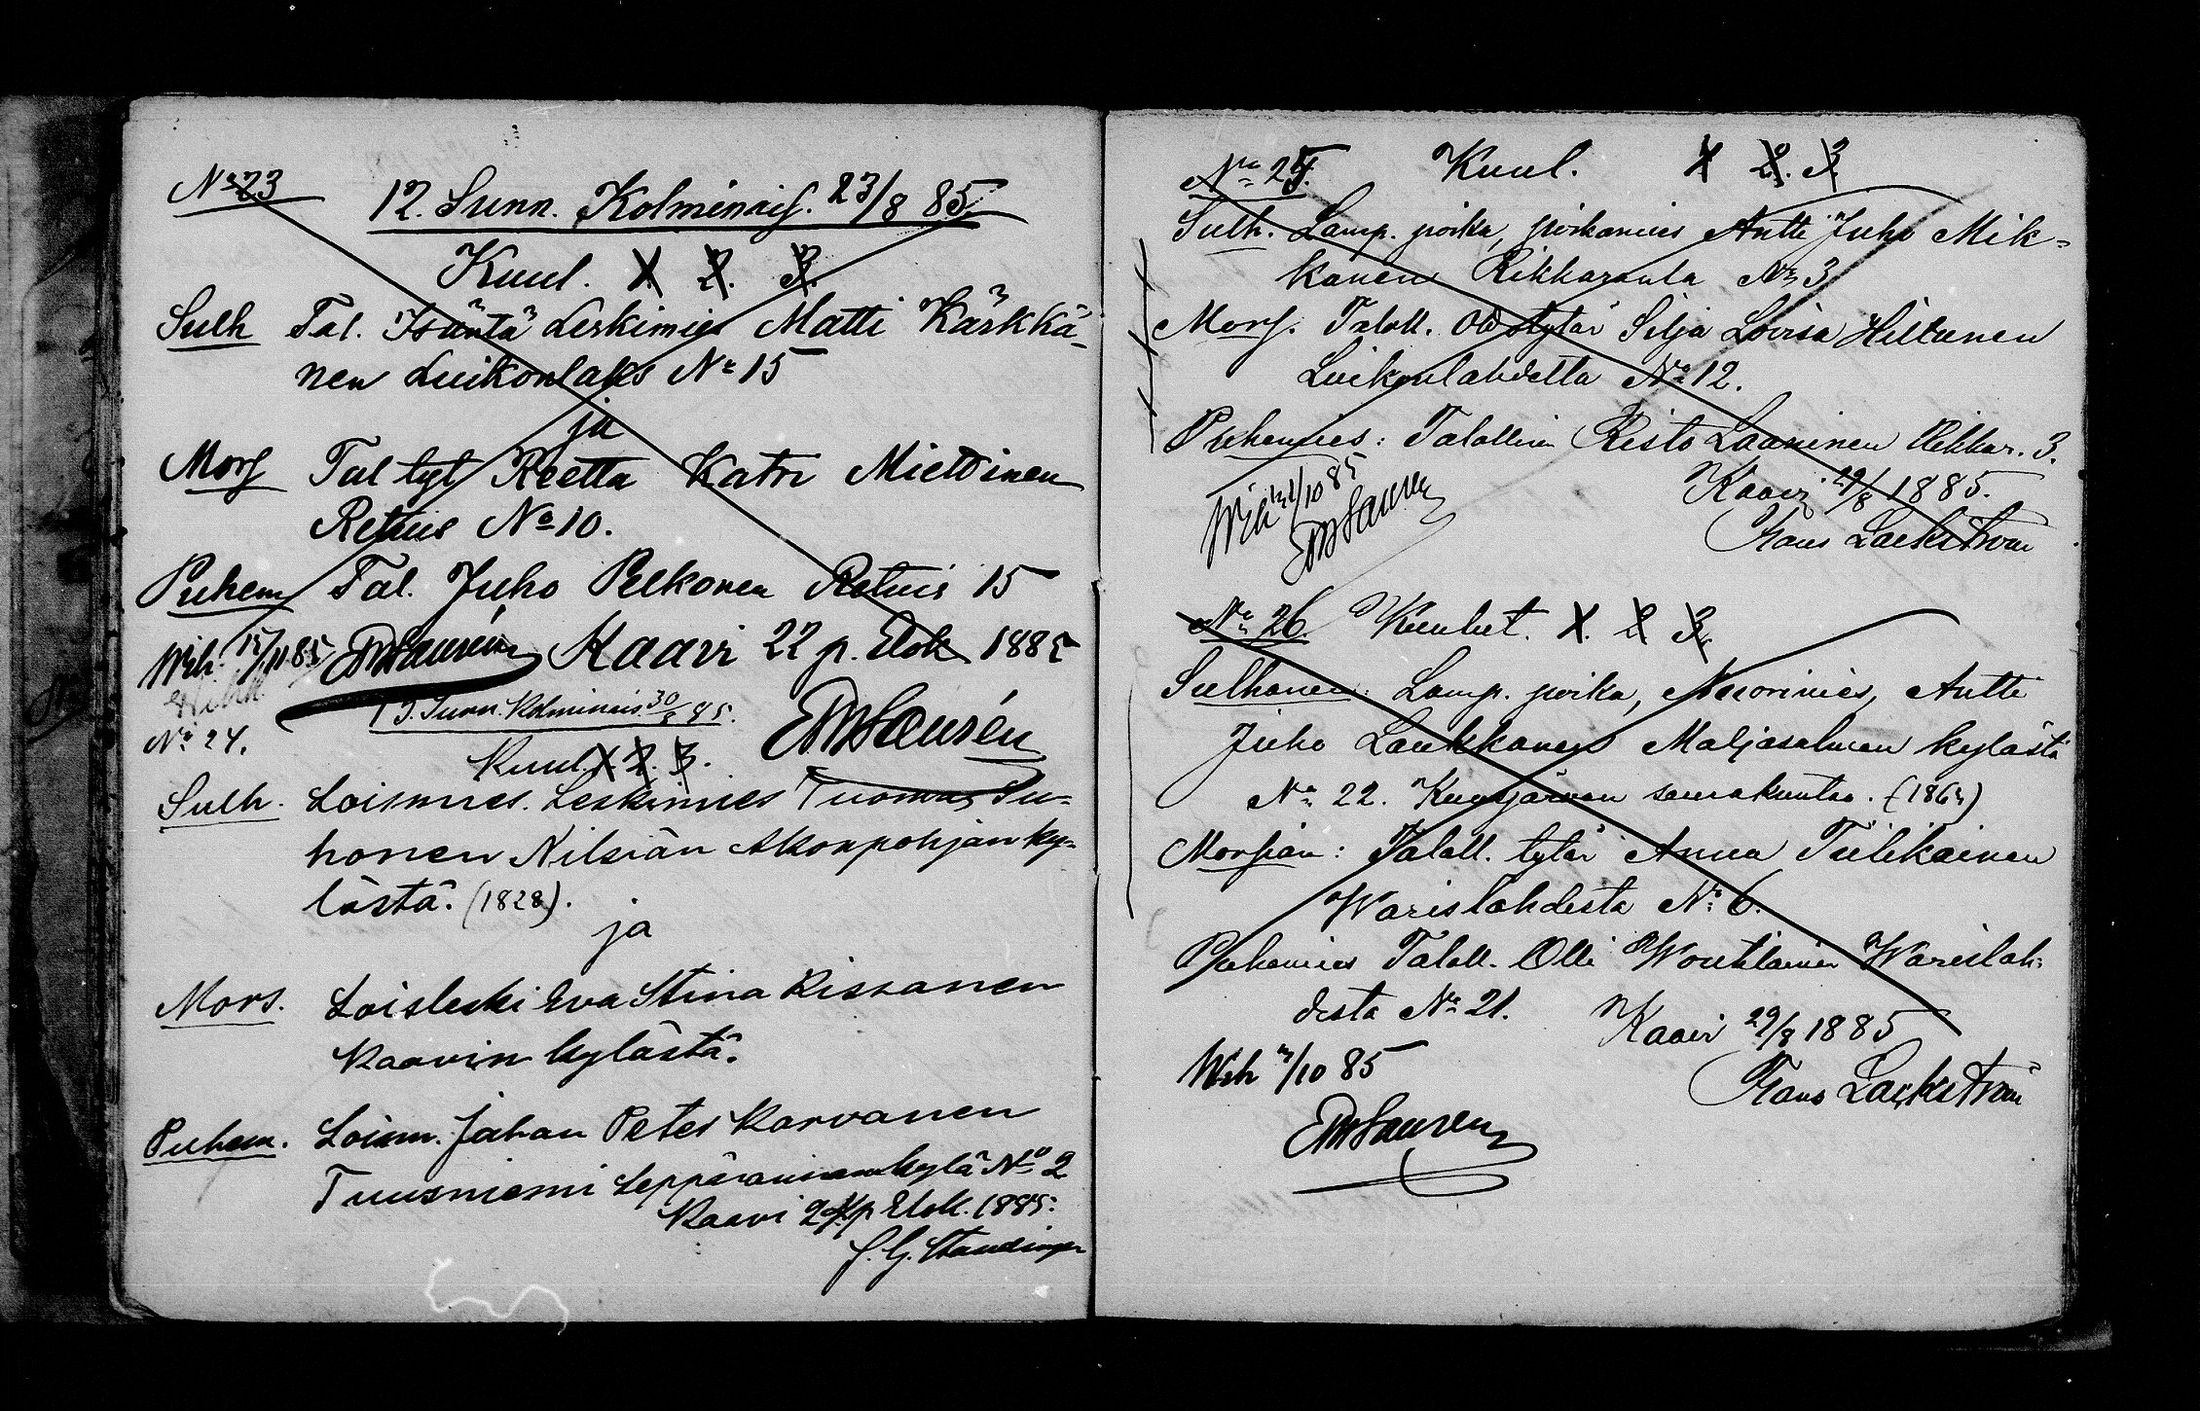 No 23
12. Sunn. Kolminais. 23/8 85.
Kuul. 1. 2. 3.
Sulh Tal. Isäntä Leskimies Matti Kärkkä-
nen Luikonlaks No 15
ja
Mors Tal tyt Reetta Katri Miettinen
Retuis No 10.
Puhem Tal. Juho Pelkonen Retuis 15
Wih. 15/11 85 Kaavi 22 p. Elok 1885
13. Sunn. Kolminais 30/8 85.
No 24.
Kuul. 1. 2. 3.
Sulh. Loismies. Leskimies Tuomas Tu-
honen Nilsiän Akonpohjan ky-
lästä. (1828).
ja
Mors. Loisleski Eva Stina Rissanen
Kaavin kylästä.
Puhem. Loism. Johan Peter Karvanen
Tuusniemi Leppärannan kylä No 2
Kaavi p Elok. 1885.
No 25. Kuul. 1. 2. 3.
Sulh. Lamp. poika, poikamies Antti Juho Mik-
kanen Rikkaranta No 3
Mors. Taloll. tytär Silja Lovisa Hiltunen
Luikonlahdelta No 12.
Puhemies: Talollinen Risto Laaninen Rikkar. 3.
Kaavi 29/8 1885.
Wih /10 85
Frans Lackström
No 26. Kuulut. 1. 2. 3.
Sulhanen: Lamp. poika, Nuorimies, Antti
Juho Laukkanen Maljasalmen kylästä
No 22. Kuusjärven seurakuntaa.
Morsian: Taloll. tytär Anna Tiilikainen
Warislahdesta No 6.
Puhemies Taloll. Olli Woutilainen Warislah-
desta No 21. Kaavi 29/8 1885
Wih /10 85
Frans Lackström